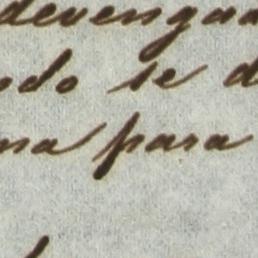 devengad
ndo se d
na para